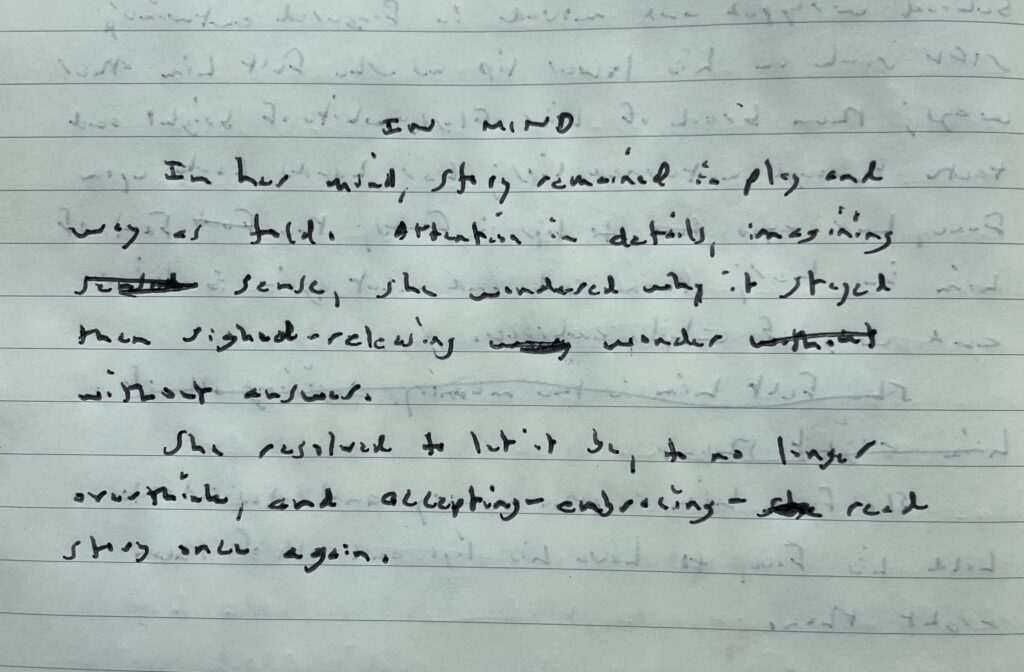 IN MIND
In her mind, story remained in play and
way as told. Attention in details, imagining
sense, she wondered why it stayed
then sighed-relewing wonder
without answer.
She resolved to let it be, to no longer
overthink, and accepting-embracing- read
story once again.